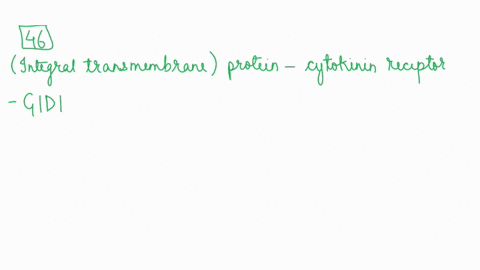 46
(Integral transmembrane) protein – cytokinin receptor
- GID1